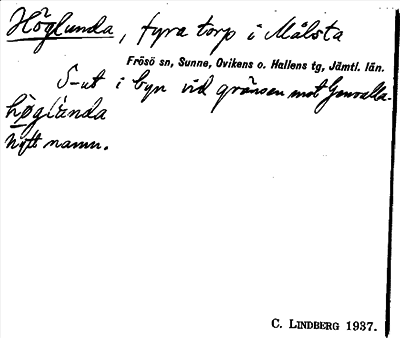 Höglunda, fyra torp i Målsta
Frösö sn, Sunne, Ovikens o. Hallens tg, Jämtl. län.
S-ut i byn vid gränsen mot Genvalla.
höglanda
nytt namn.
C. LINDBERG 1937.